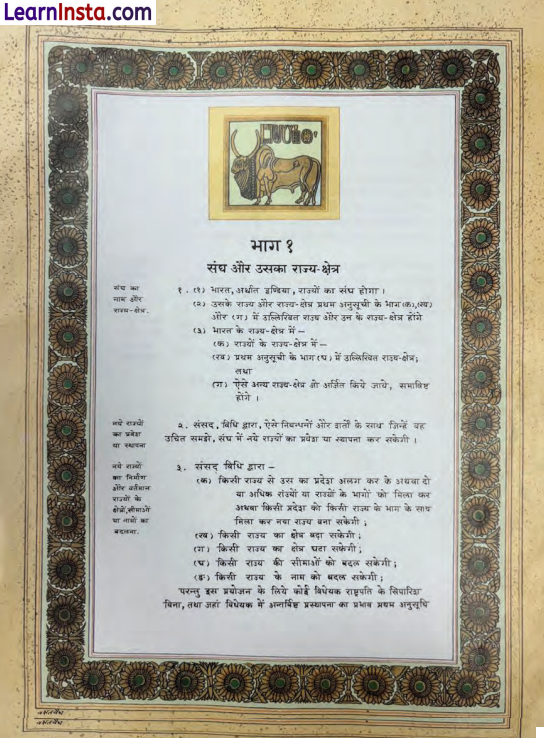 LearnInsta.com
भाग १
संघ और उसका राज्य-क्षेत्र
संघ का
नाम और
राज्य-क्षेत्र.
१. (१) भारत, अर्थात इण्डिया, राज्यों का संघ होगा ।
(२) उसके राज्य और राज्य-क्षेत्र प्रथम अनुसूची के भाग (क),(ख)
और (ग) में उल्लिखित राज्य और उन के राज्य-क्षेत्र होंगे
(३) भारत के राज्य-क्षेत्र में —
(क) राज्यों के राज्य-क्षेत्र में —
(ख) प्रथम अनुसूची के भाग (घ) में उल्लिखित राज्य-क्षेत्र;
तथा
(ग) ऐसे अन्य राज्य-क्षेत्र जो अर्जित किये जायें, समाविष्ट
होंगे ।
नये राज्यों
का प्रवेश
या स्थापना
२. संसद, विधि द्वारा, ऐसे निबन्धनों और शर्तों के साथ जिन्हें वह
उचित समझे, संघ में नये राज्यों का प्रवेश या स्थापना कर सकेगी ।
नये राज्यों
का निर्माण
और वर्तमान
राज्यों के
क्षेत्रों,सीमाओं
या नामों का
बदलना.
३. संसद विधि द्वारा —
(क) किसी राज्य से उस का प्रदेश अलग कर के अथवा दो
या अधिक राज्यों या राज्यों के भागों को मिला कर
अथवा किसी प्रदेश को किसी राज्य के भाग के साथ
मिला कर नया राज्य बना सकेगी ;
(ख) किसी राज्य का क्षेत्र बढ़ा सकेगी ;
(ग) किसी राज्य का क्षेत्र घटा सकेगी ;
(घ) किसी राज्य की सीमाओं को बदल सकेगी ;
(ङ) किसी राज्य के नाम को बदल सकेगी ;
परन्तु इस प्रयोजन के लिये कोई विधेयक राष्ट्रपति के सिपारिश
बिना, तथा जहां विधेयक में अन्तर्विष्ट प्रस्थापना का प्रभाव प्रथम अनुसूचि